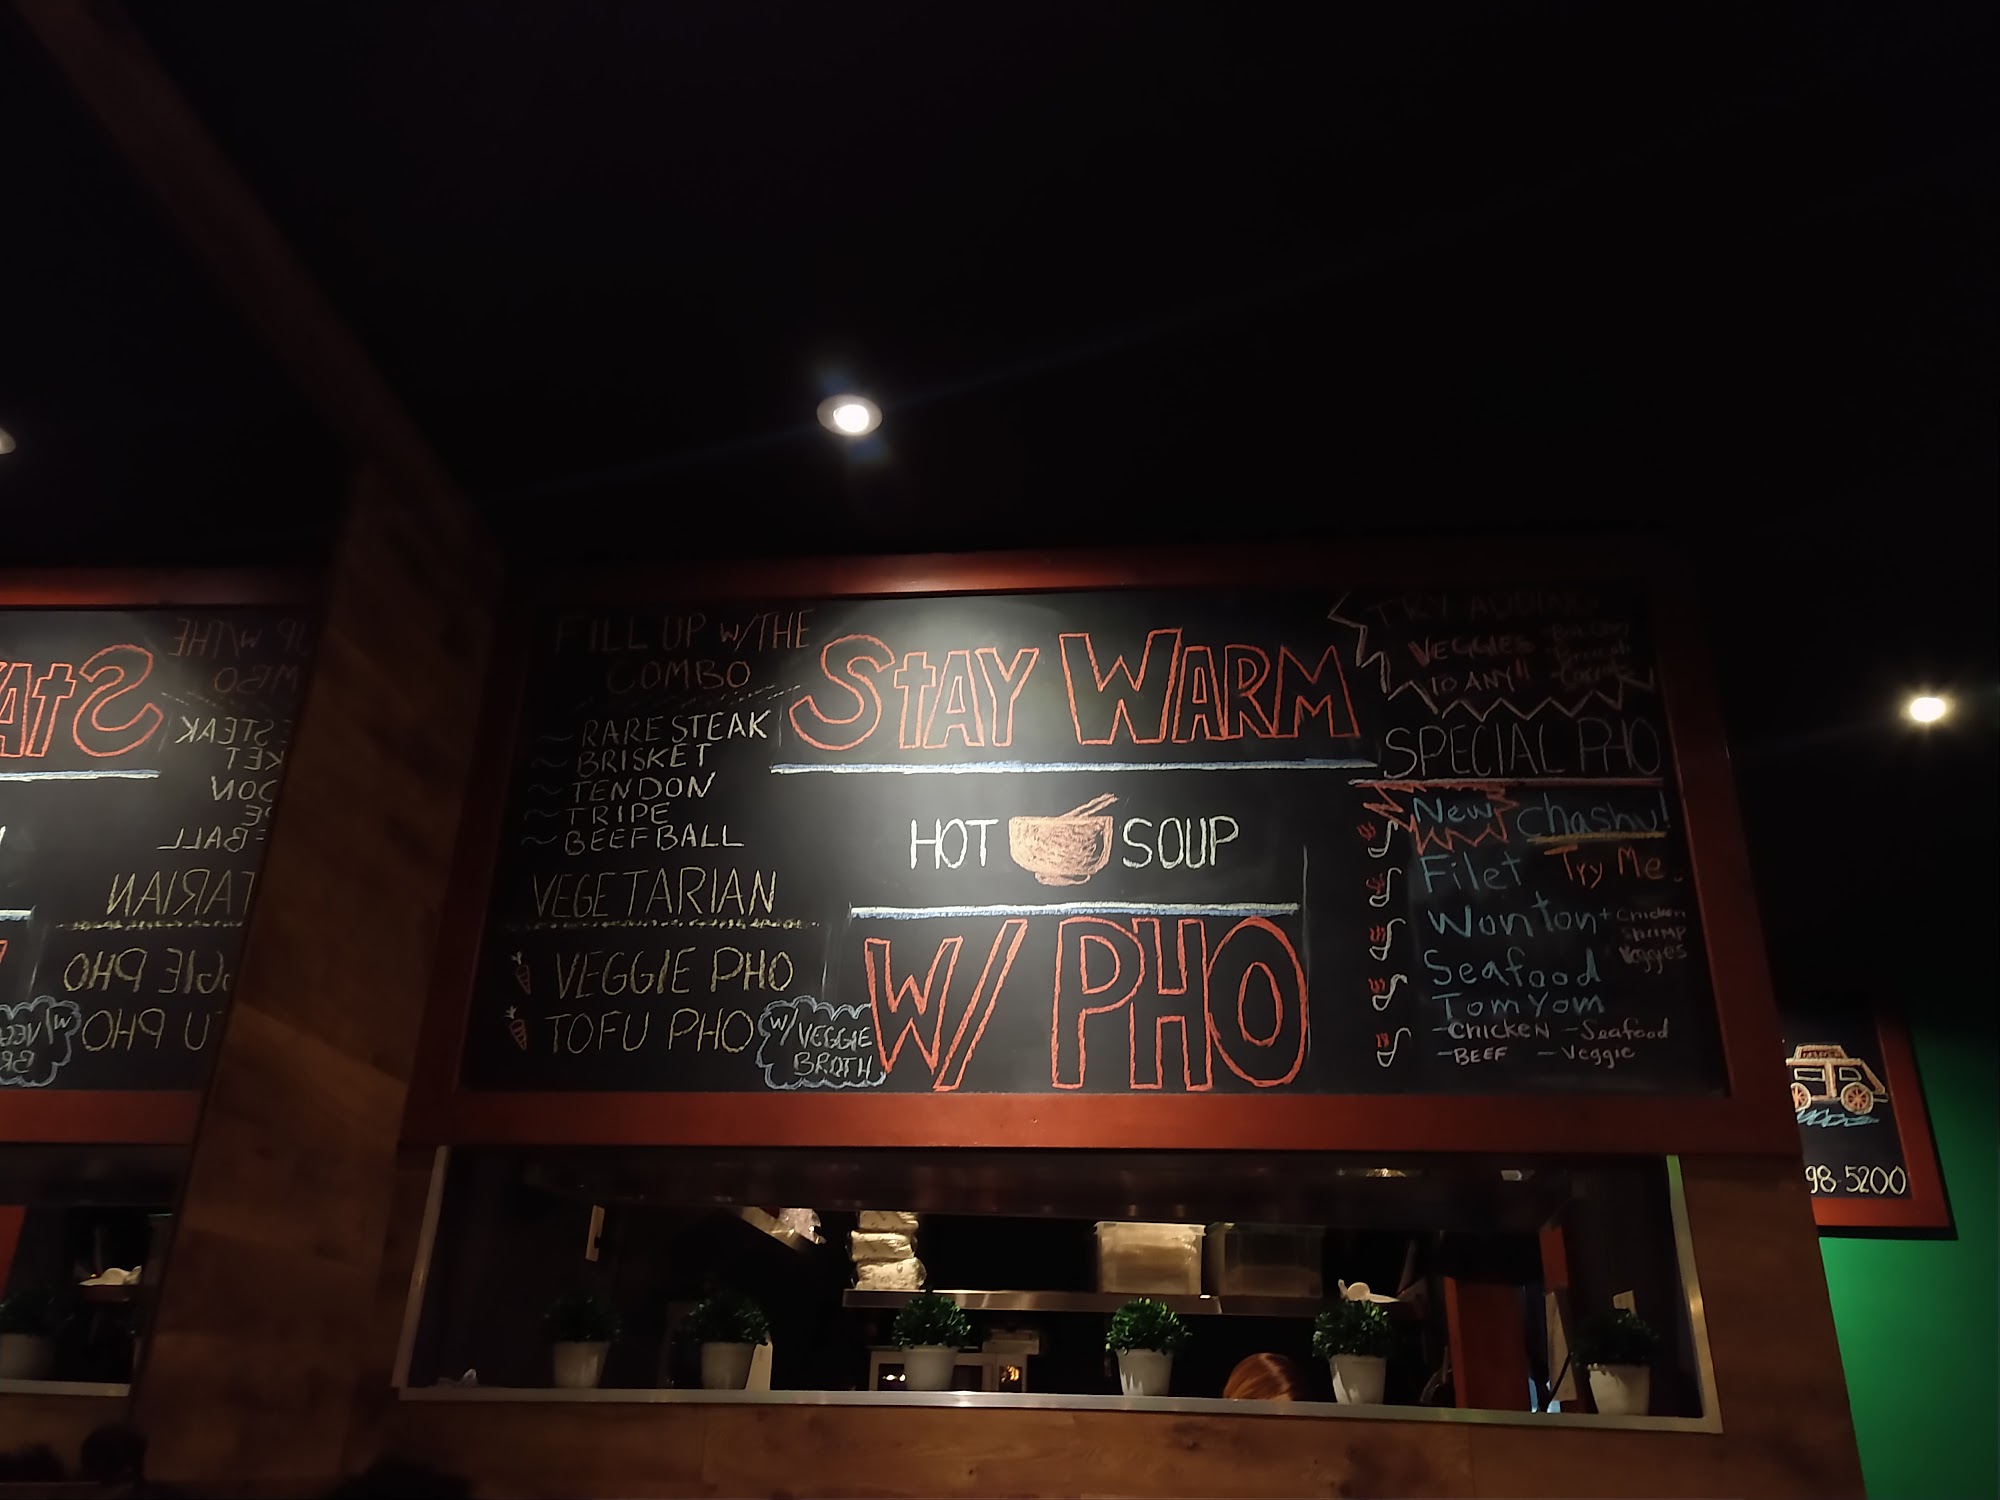 FILL UP W/THE
COMBO
~ RARE STEAK
~ BRISKET
~ TENDON
~ TRIPE
~ BEEF BALL
VEGETARIAN
VEGGIE PHO
TOFU PHO
W/ VEGGIE
BROTH
STAY WARM
HOT SOUP
W/ PHO
TRY ADDING
VEGGIES
TO ANY!!
- Broccoli
- Carrots
SPECIAL PHO
New chashu!
Filet Try Me.
Wonton + chicken
shrimp
veggies
Seafood
Tom Yom
- CHICKEN - Seafood
- BEEF - Veggie
98-5200